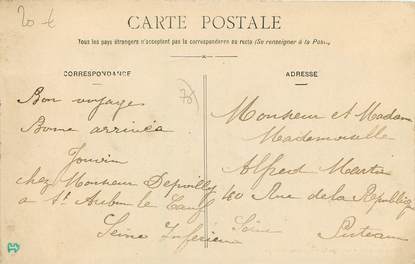 20 €
CARTE POSTALE
Tous les pays étrangers n'acceptent pas la correspondance au recto (Se renseigner à la Poste)
CORRESPONDANCE
Bon voyage
Bonne arrivée
chez Monsieur
a St. Aubin le Cauf
Seine Inférieure
78
ADRESSE
Monsieur et Madame
Mademoiselle
Alfred Martin
40 Rue de la République
Puteaux
Seine